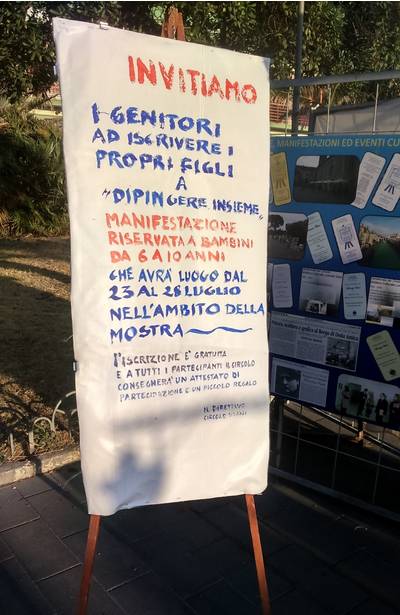 INVITIAMO
I GENITORI
AD ISCRIVERE I
PROPRI FIGLI
A
"DIPINGERE INSIEME"
MANIFESTAZIONE
RISERVATA A BAMBINI
DA 6 A 10 ANNI
CHE AVRÀ LUOGO DAL
23 AL 28 LUGLIO
NELL'AMBITO DELLA
MOSTRA
L'ISCRIZIONE E' GRATUITA
E A TUTTI I PARTECIPANTI IL CIRCOLO
CONSEGNERA' UN ATTESTATO DI
PARTECIPAZIONE E UN PICCOLO REGALO
IL DIRETTIVO
CIRCOLO
MANIFESTAZIONI ED EVENTI CU